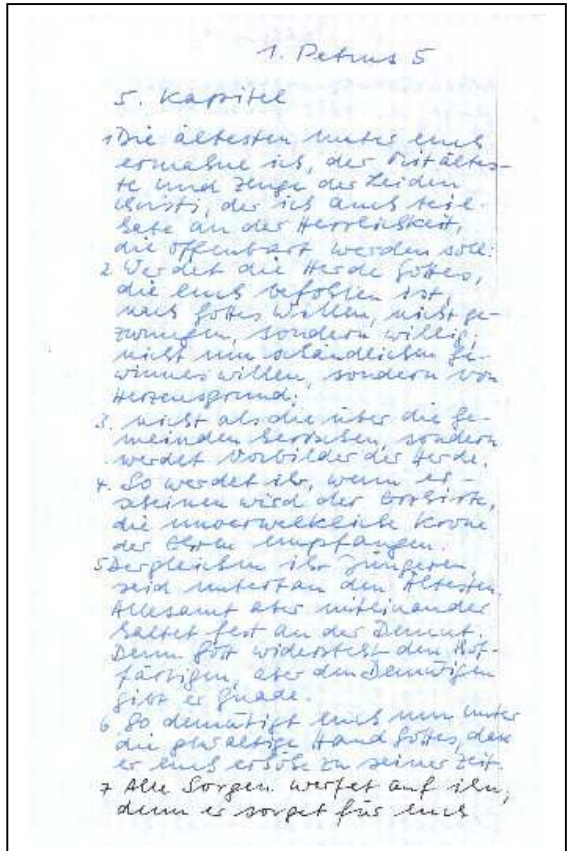 1. Petrus 5
5. Kapitel
1 Die ältesten unter euch
ermahne ich, der Mitältes-
te und Zeuge der Leiden
Christi, der ich auch teil-
habe an der Herrlichkeit,
die offenbart werden soll:
2 Werdet die Herde Gottes,
die euch befohlen ist,
nach Gottes Willen, nicht ge-
zwungen, sondern willig;
nicht um schändlichen Ge-
winnes willen, sondern von
Herzensgrund;
3. nicht als die über die Ge-
meinden herrschen, sondern
werdet Vorbilder der Herde.
4. So werdet ihr, wenn er-
scheinen wird der Erzhirte,
die unverwelkliche Krone
der Ehren empfangen.
5 Dergleichen ihr Jüngeren,
seid untertan den Ältesten.
Allesamt aber miteinander
haltet fest an der Demut.
Denn Gott widersteht den Hof-
färtigen, aber den Demütigen
gibt er Gnade.
6 So demütigt euch nun unter
die gewaltige Hand Gottes, dass
er euch erhöhe zu seiner Zeit.
7 Alle Sorgen werfet auf ihn,
denn er sorget für euch